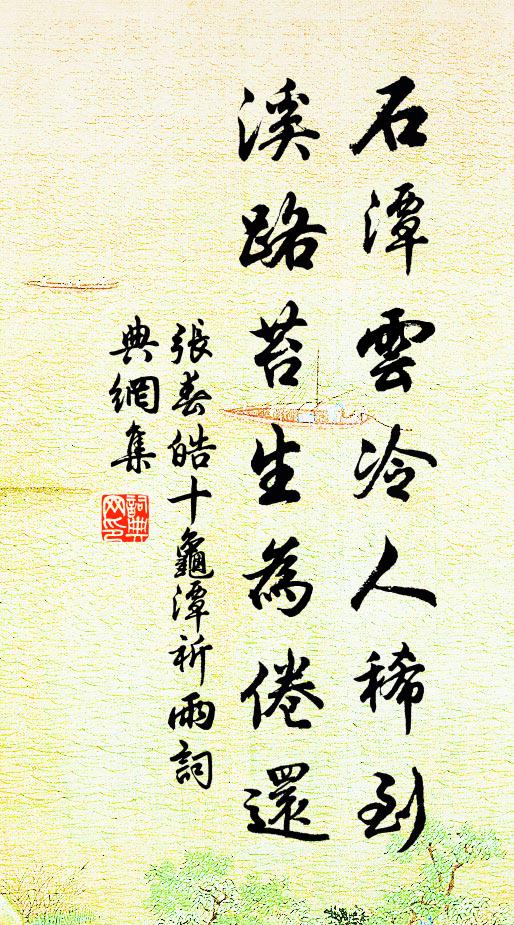 石潭雲冷人稀到
溪路苔生為倦還
張春皓十龜潭祈雨詞
典網集
詞典
网印